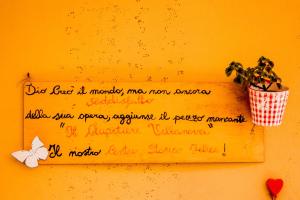 Dio Creò il mondo, ma non ancora
soddisfatto
della sua opera, aggiunse il pezzo mancante
"Il Quartiere Villanova"
Il nostro Centro Storico Felice !